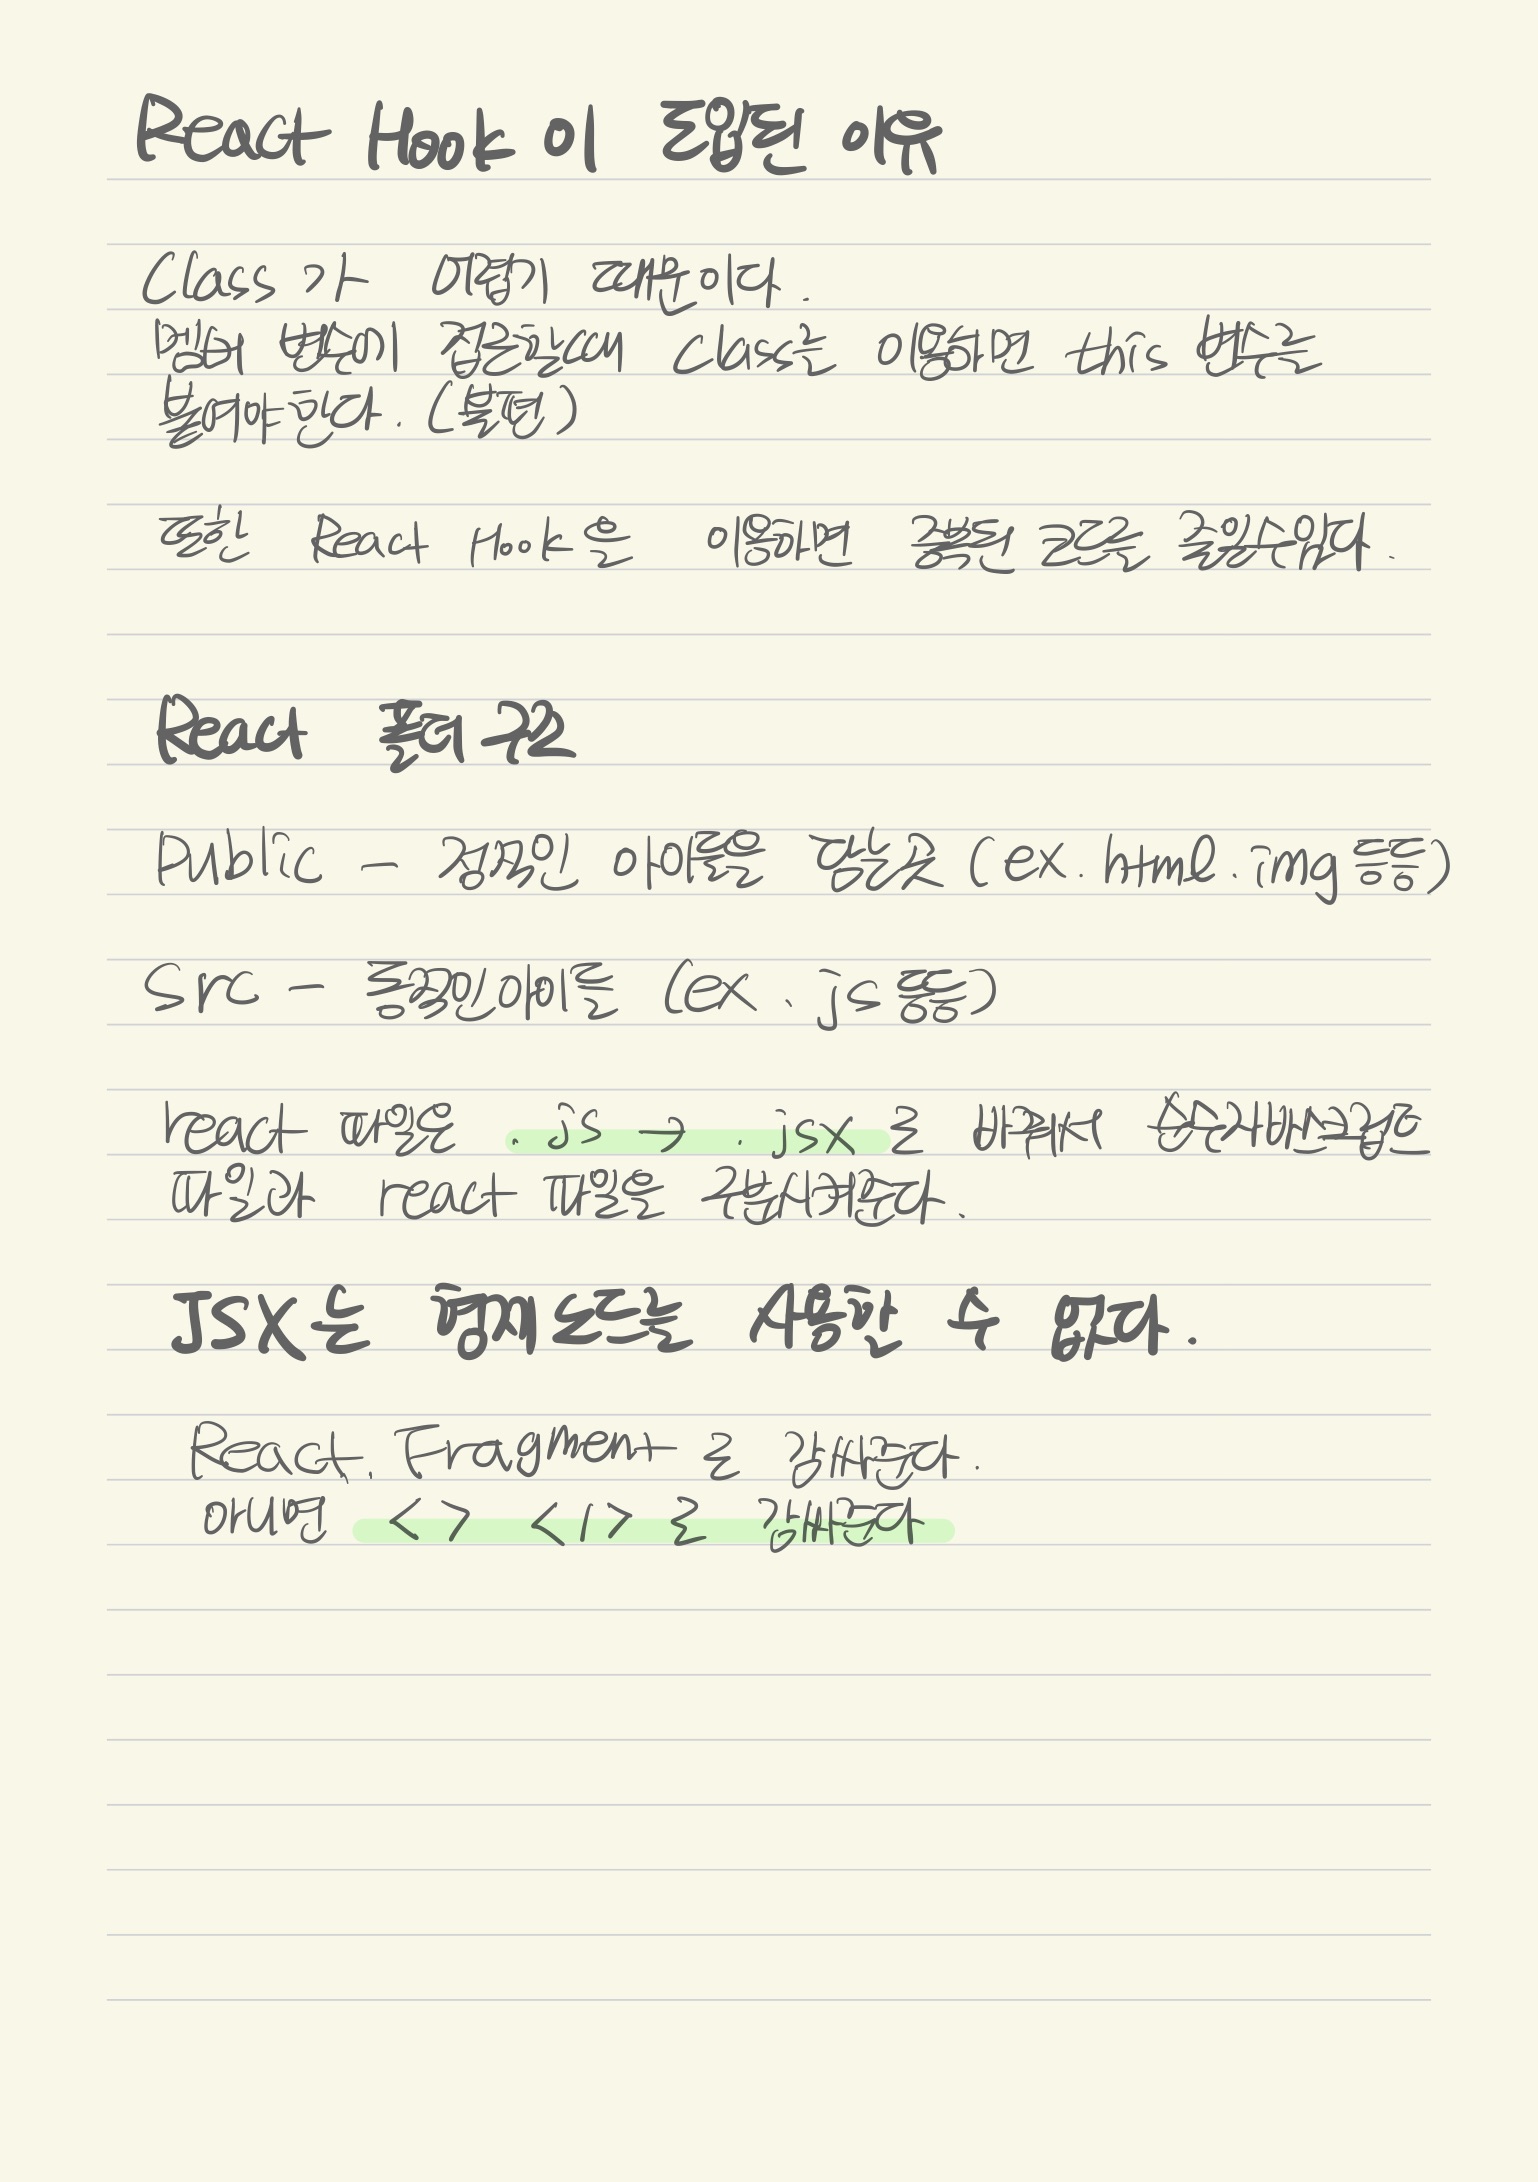 React Hook이 도입된 이유
Class가 어렵기 때문이다.
멤버 변수에 접근할때 class는 이용하면 this 변수를
붙여야한다. (불편)
또한 React Hook을 이용하면 중복된 코드를 줄일수있다.
React 폴더구조
Public - 정적인 아이들을 담는곳 (ex. html. img 등등)
Src - 동적인아이들 (ex. js 등등)
react 파일은 .js → .jsx로 바꿔서 순수자바스크립트
파일과 react 파일을 구분시켜준다.
JSX는 형제노드를 사용할 수 없다.
React. Fragment 로 감싸준다.
아니면 < > </> 로 감싸준다